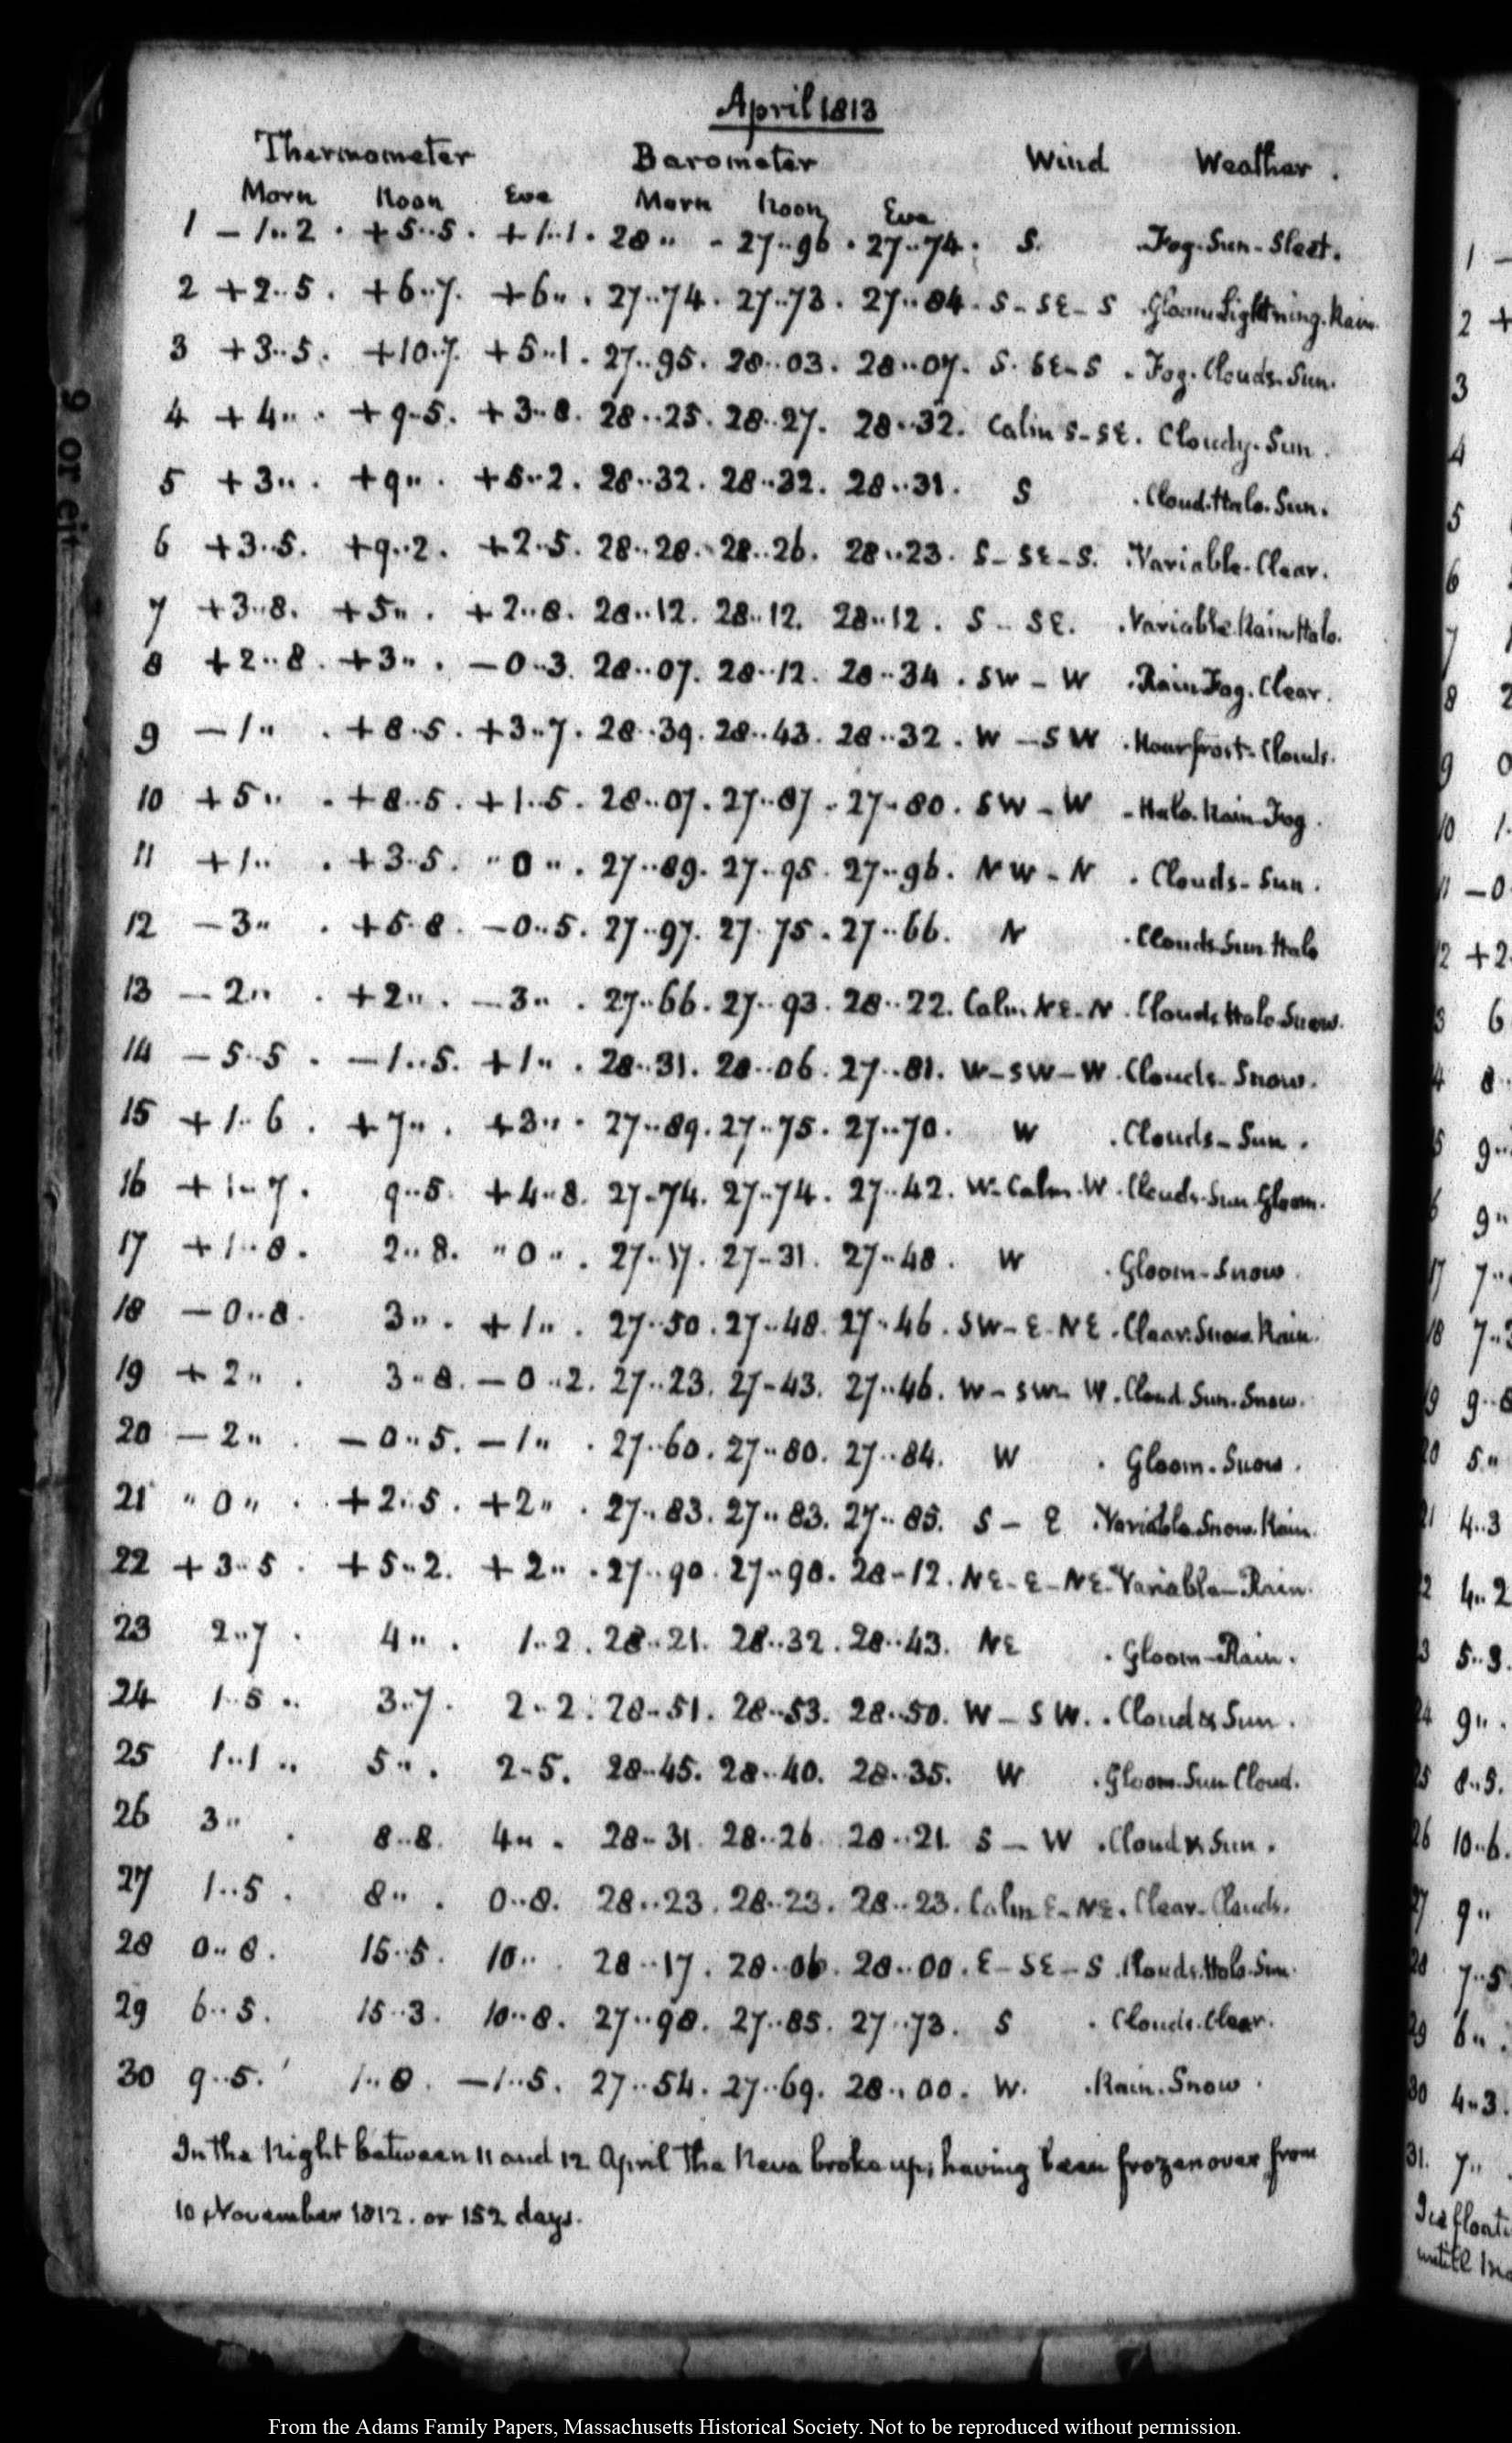 April 1813
Thermometer Barometer Wind Weather.
Morn Noon Eve Morn Noon Eve
1 – 1..2 . + 5..5 . + 1..1 . 28 " . 27..96 . 27..74 . S. . Fog. Sun – Sleet.
2 + 2..5 . + 6..7. + 6" . 27..74. 27..73. 27..84 . S – SE – S . Gloom Lightning. Rain
3 + 3..5. + 10.7. + 5..1 . 27..95. 28..03. 28..07. S. SE – S . Fog. Clouds. Sun.
4 + 4" . + 9..5. + 3..8. 28..25. 28..27. 28..32. Calm S – SE. Cloudy. Sun.
5 + 3" . + 9" . + 5..2. 28..32. 28..32. 28..31. S . Cloud. Halo. Sun.
6 + 3..5. + 9..2. + 2..5. 28..28. 28..26. 28..23. S – SE – S. Variable. Clear.
7 + 3..8. + 5" . + 2..8. 28..12. 28..12. 28..12. S – SE. . Variable. Rain Halo.
8 + 2..8 . + 3" . – 0..3. 28..07. 28..12. 28..34 . SW – W . Rain Fog. Clear.
9 – 1" . + 8..5. + 3..7. 28..39. 28..43. 28..32. W – SW . Hoarfrost – Clouds.
10 + 5" . + 8..5. + 1..5. 28..07. 27..87. 27..80. SW – W – Halo. Rain – Fog.
11 + 1" . + 3..5. " 0 " . 27..89. 27..95. 27..96. NW – N . Clouds – Sun.
12 – 3" . + 5..8. – 0..5. 27..97. 27..75. 27..66. N . Clouds Sun Halo
13 – 2" . + 2" . – 3" . 27..66. 27..93. 28..22. Calm NE – N . Clouds Halo Snow.
14 – 5..5 . – 1..5. + 1" . 28..31. 28..06. 27..81. W – SW – W . Clouds – Snow.
15 + 1..6 . + 7" . + 3" . 27..89. 27..75. 27..70. W . Clouds – Sun.
16 + 1..7. 9..5. + 4..8. 27..74. 27..74. 27..42. W. Calm. W . Clouds. Sun Gloom.
17 + 1..8. 2..8. " 0 " . 27..17. 27..31. 27..48. W . Gloom – Snow.
18 – 0..8. 3" . + 1" . 27..50. 27..48. 27..46. SW – E – NE . Clear. Snow. Rain.
19 + 2" . 3..8. – 0..2. 27..23. 27..43. 27..46. W – SW – W . Cloud. Sun. Snow.
20 – 2" . – 0..5. – 1" . 27..60. 27..80. 27..84. W . Gloom. Snow.
21 " 0 " . + 2..5. + 2" . 27..83. 27..83. 27..85. S – E . Variable Snow. Rain.
22 + 3..5 . + 5..2. + 2" . 27..90. 27..98. 28..12. NE – E – NE. Variable – Rain.
23 2..7 . 4" . 1..2. 28..21. 28..32. 28..43. NE . Gloom – Rain.
24 1..5 .. 3..7. 2..2. 28..51. 28..53. 28..50. W – SW. . Cloud & Sun.
25 1..1 .. 5" . 2..5. 28..45. 28..40. 28..35. W . Gloom. Sun Cloud.
26 3" . 8..8. 4" . 28..31. 28..26. 28..21. S – W . Cloud & Sun.
27 1..5 . 8" . 0..8. 28..23. 28..23. 28..23. Calm E – NE . Clear – Clouds.
28 0..8. 15..5. 10" . 28..17. 28..06. 28..00. E – SE – S . Clouds. Halo. Sun.
29 6..5. 15..3. 10..8. 27..98. 27..85. 27..73. S . Clouds. Clear.
30 9..5. 1..8. – 1..5. 27..54. 27..69. 28..00. W. . Rain. Snow.
In the Night between 11 and 12 April the Neva broke up; having been frozen over from
10 November 1812. or 152 days.
From the Adams Family Papers, Massachusetts Historical Society. Not to be reproduced without permission.